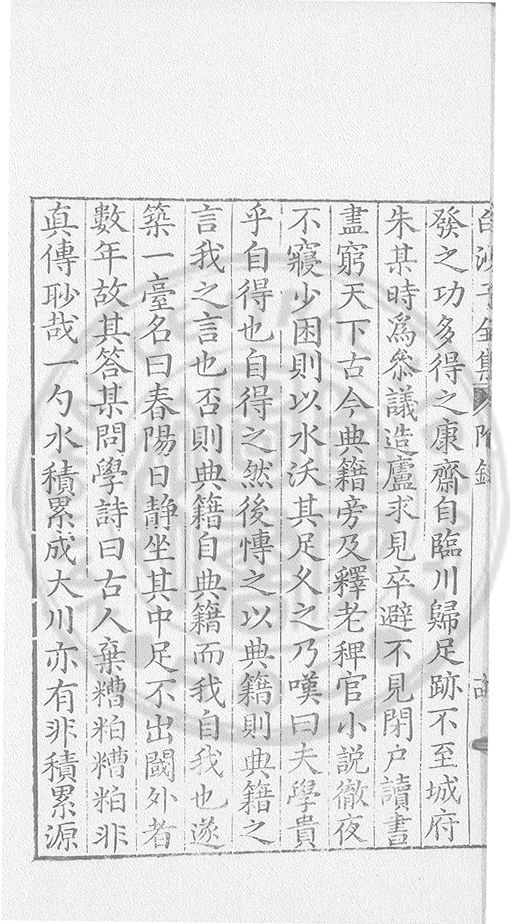 白沙子全集 附錄
發之功多得之康齋自臨川歸足跡不至城府
朱某時為叅議造廬求見卒避不見閉戸讀書
盡窮天下古今典籍旁及釋老稗官小説徹夜
不寢少困則以水沃其足久之乃嘆曰夫學貴
乎自得也自得之然後慱之以典籍則典籍之
言我之言也否則典籍自典籍而我自我也遂
築一臺名曰春陽日靜坐其中足不出閾外者
數年故其答某問學詩曰古人棄糟粕糟粕非
真傳眇哉一勺水積累成大川亦有非積累源